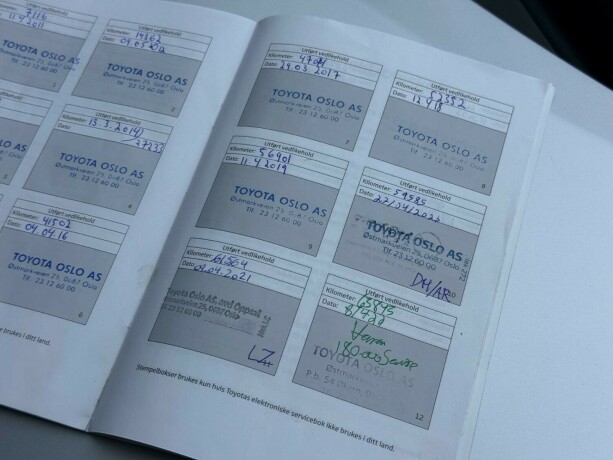 7116
11.4.2011
TOYOTA OSLO AS
Utført vedlikehold
Kilometer: 14362
Dato: 04.05
TOYOTA OSLO AS
Østmarkveien 25, 0687 Oslo
Tlf. 23 12 60 00
2
Utført vedlikehold
Kilometer:
Dato: 13.3.2014
27233
TOYOTA OSLO AS
Østmarkveien 25, 0687 Oslo
Tlf. 23 12 60 00
4
Utført vedlikehold
Kilometer: 41502
Dato: 04.04.16
TOYOTA OSLO AS
Østmarkveien 25, 0687 Oslo
Tlf. 23 12 60 00
6
brukes i ditt land.
Utført vedlikehold
Kilometer:
Dato: 29.03.2017
TOYOTA OSLO AS
Østmarkveien 25, 0687 Oslo
Tlf. 23 12 60 00
7
Utført vedlikehold
Kilometer: 52352
Dato: 12.4.18
TOYOTA OSLO AS
Østmarkveien 25, 0687 Oslo
Tlf. 23 12 60 00
8
Utført vedlikehold
Kilometer: 56901
Dato: 11.4.2019
TOYOTA OSLO AS
Østmarkveien 25, 0687 Oslo
Tlf. 23 12 60 00
9
Utført vedlikehold
Kilometer: 59585
Dato:
TOYOTA OSLO AS
Østmarkveien 25, 0687 Oslo
Tlf. 23 12 60 00
10
Utført vedlikehold
Kilometer: 61564
Dato: 07.04.2021
Toyota Oslo AS, avd Oppsal
Østmarkveien 25, 0687 Oslo
Tlf. 23 12 60 00
LZ
Utført vedlikehold
Kilometer:
Dato:
180.000 Service
TOYOTA OSLO AS
Østmarkveien
12
Stempelbokser brukes kun hvis Toyotas elektroniske servicebok ikke brukes i ditt land.